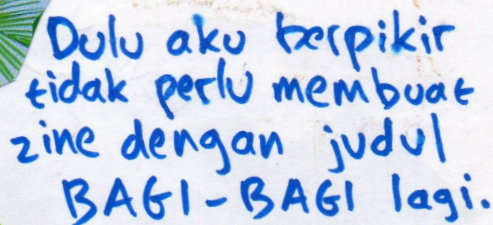 Dulu aku berpikir
tidak perlu membuat
zine dengan judul
BAGI-BAGI lagi.